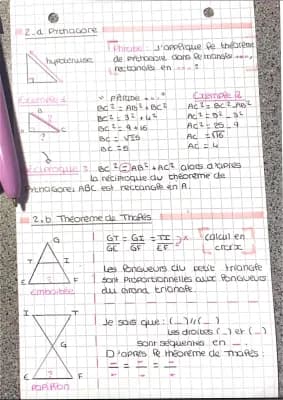 2.a Pythagore
Phrase: J'applique le théorème
de Pythagore dans le triangle ...,
rectangle en ... :
hypoténuse
Exemple 1
" PHRASE ... "
BC² = AB² + BC²
BC² = 3² + 4²
BC² = 9 + 16
BC = √15
BC = 5
Exemple 2
AC² = BC² - AB²
AC² = 5² - 3²
AC² = 25 - 9
AC = √16
AC = 4
Réciproque : BC² = AB² + AC² alors d'après
la réciproque du théorème de
Pythagore, ABC est rectangle en A.
2.b Théorème de Thalès
GT/GE = GI/GF = TI/EF
calcul en
croix
Les longueurs du petit triangle
sont proportionnelles aux longueurs
du grand triangle.
G
T I
E ? F
emboîtée
Je sais que : (_) // (_)
les droites (_) et (_)
sont séquentes en _.
D'après le théorème de Thalès :
_ = _ = _
I T
G
E ? F
papillon